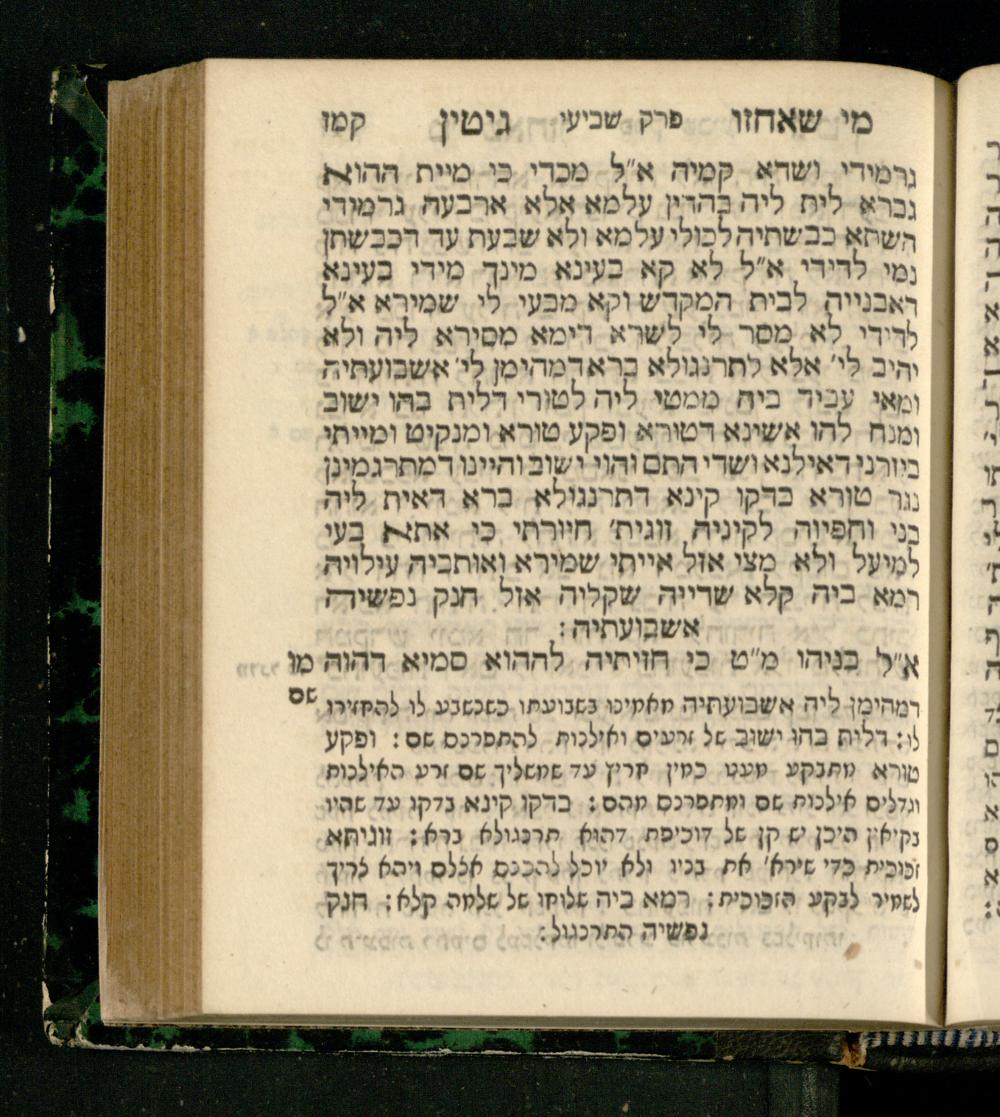 מי שאחזו פרק שביעי גיטין קמז
גרמידי ושדא קמיה א"ל מכדי כי מיית ההוא
גברא לית ליה בהדין עלמא אלא ארבעה גרמידי
השתא כבשתיה לכולי עלמא ולא שבעת עד דכבשתן
נמי לדידי א"ל לא קא בעינא מינך מידי בעינא
דאבנייה לבית המקדש וקא מבעי לי שמירא א"ל
לדידי לא מסר לי לשרא דימא מסירא ליה ולא
יהיב לי' אלא לתרנגולא ברא דמהימן לי' אשבועתיה
ומאי עביד ביה ממטי ליה לטורי דלית בהו ישוב
ומנח להו אשינא דטורא ופקע טורא ומנקיט ומייתי
ביזרני דאילנא ושדי התם והוי ישוב והיינו דמתרגמינן
נגר טורא בדקו קינא דתרנגולא ברא דאית ליה
בני וחפיוה לקיניה זוגית' חיורתי כי אתא בעי
למיעל ולא מצי אזל אייתי שמירא ואותביה עילויה
רמא ביה קלא שדייה שקליה אזל חנק נפשיה
אשבועתיה:
א"ל בניהו מ"ט כי חזיתיה לההוא סמיא דהוה מו
שם
דמהימן ליה אשבועתיה מאמינו בשבועתו כשנשבע לו להחזירו
לו: דלית בהו ישוב של זרעים ואילנות להתפרנס שם: ופקע
טורא מתבקע מעט כמין חריץ עד שמשליך שם זרע האילנות
וגדלים אילנות שם ומתפרנס מהם: בדקו קינא בדקו עד שהיו
בקיאין היכן יש קן של דוכיפת דהוא תרנגולא ברא: זוגיתא
זכוכית כדי שירא' את בניו ולא יוכל להכנס אצלם ויהא צריך
לשמיר לבקע הזכוכית: רמא ביה שלוחו של שלמה קלא: חנק
נפשיה התרנגול: